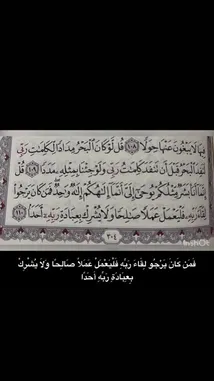 فِيهَا لَا يَبْغُونَ عَنْهَا حِوَلًا ١٠٨ قُل لَّوْ كَانَ ٱلْبَحْرُ مِدَادًا لِّكَلِمَٰتِ رَبِّى
لَنَفِدَ ٱلْبَحْرُ قَبْلَ أَن تَنفَدَ كَلِمَٰتُ رَبِّى وَلَوْ جِئْنَا بِمِثْلِهِۦ مَدَدًا ١٠٩ قُلْ
إِنَّمَآ أَنَا۠ بَشَرٌ مِّثْلُكُمْ يُوحَىٰٓ إِلَىَّ أَنَّمَآ إِلَٰهُكُمْ إِلَٰهٌ وَٰحِدٌ فَمَن كَانَ يَرْجُوا۟
لِقَآءَ رَبِّهِۦ فَلْيَعْمَلْ عَمَلًا صَٰلِحًا وَلَا يُشْرِكْ بِعِبَادَةِ رَبِّهِۦٓ أَحَدًۢا ١١٠
٣٠٤
فَمَن كَانَ يَرْجُو لِقَاءَ رَبِّهِ فَلْيَعْمَلْ عَمَلاً صَالِحًا وَلَا يُشْرِكْ
بِعِبَادَةِ رَبِّهِ أَحَدًا